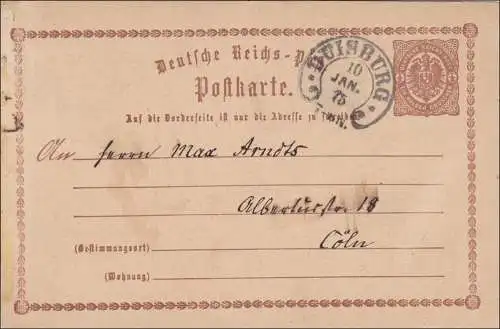 Deutsche Reichs-P
Postkarte.
DUISBURG
10
JAN.
75
Auf die Vorderseite ist nur die Adresse zu
An Herrn Max Arndts
Albertusstr. 18
(Bestimmungsort) Cöln
(Wohnung)